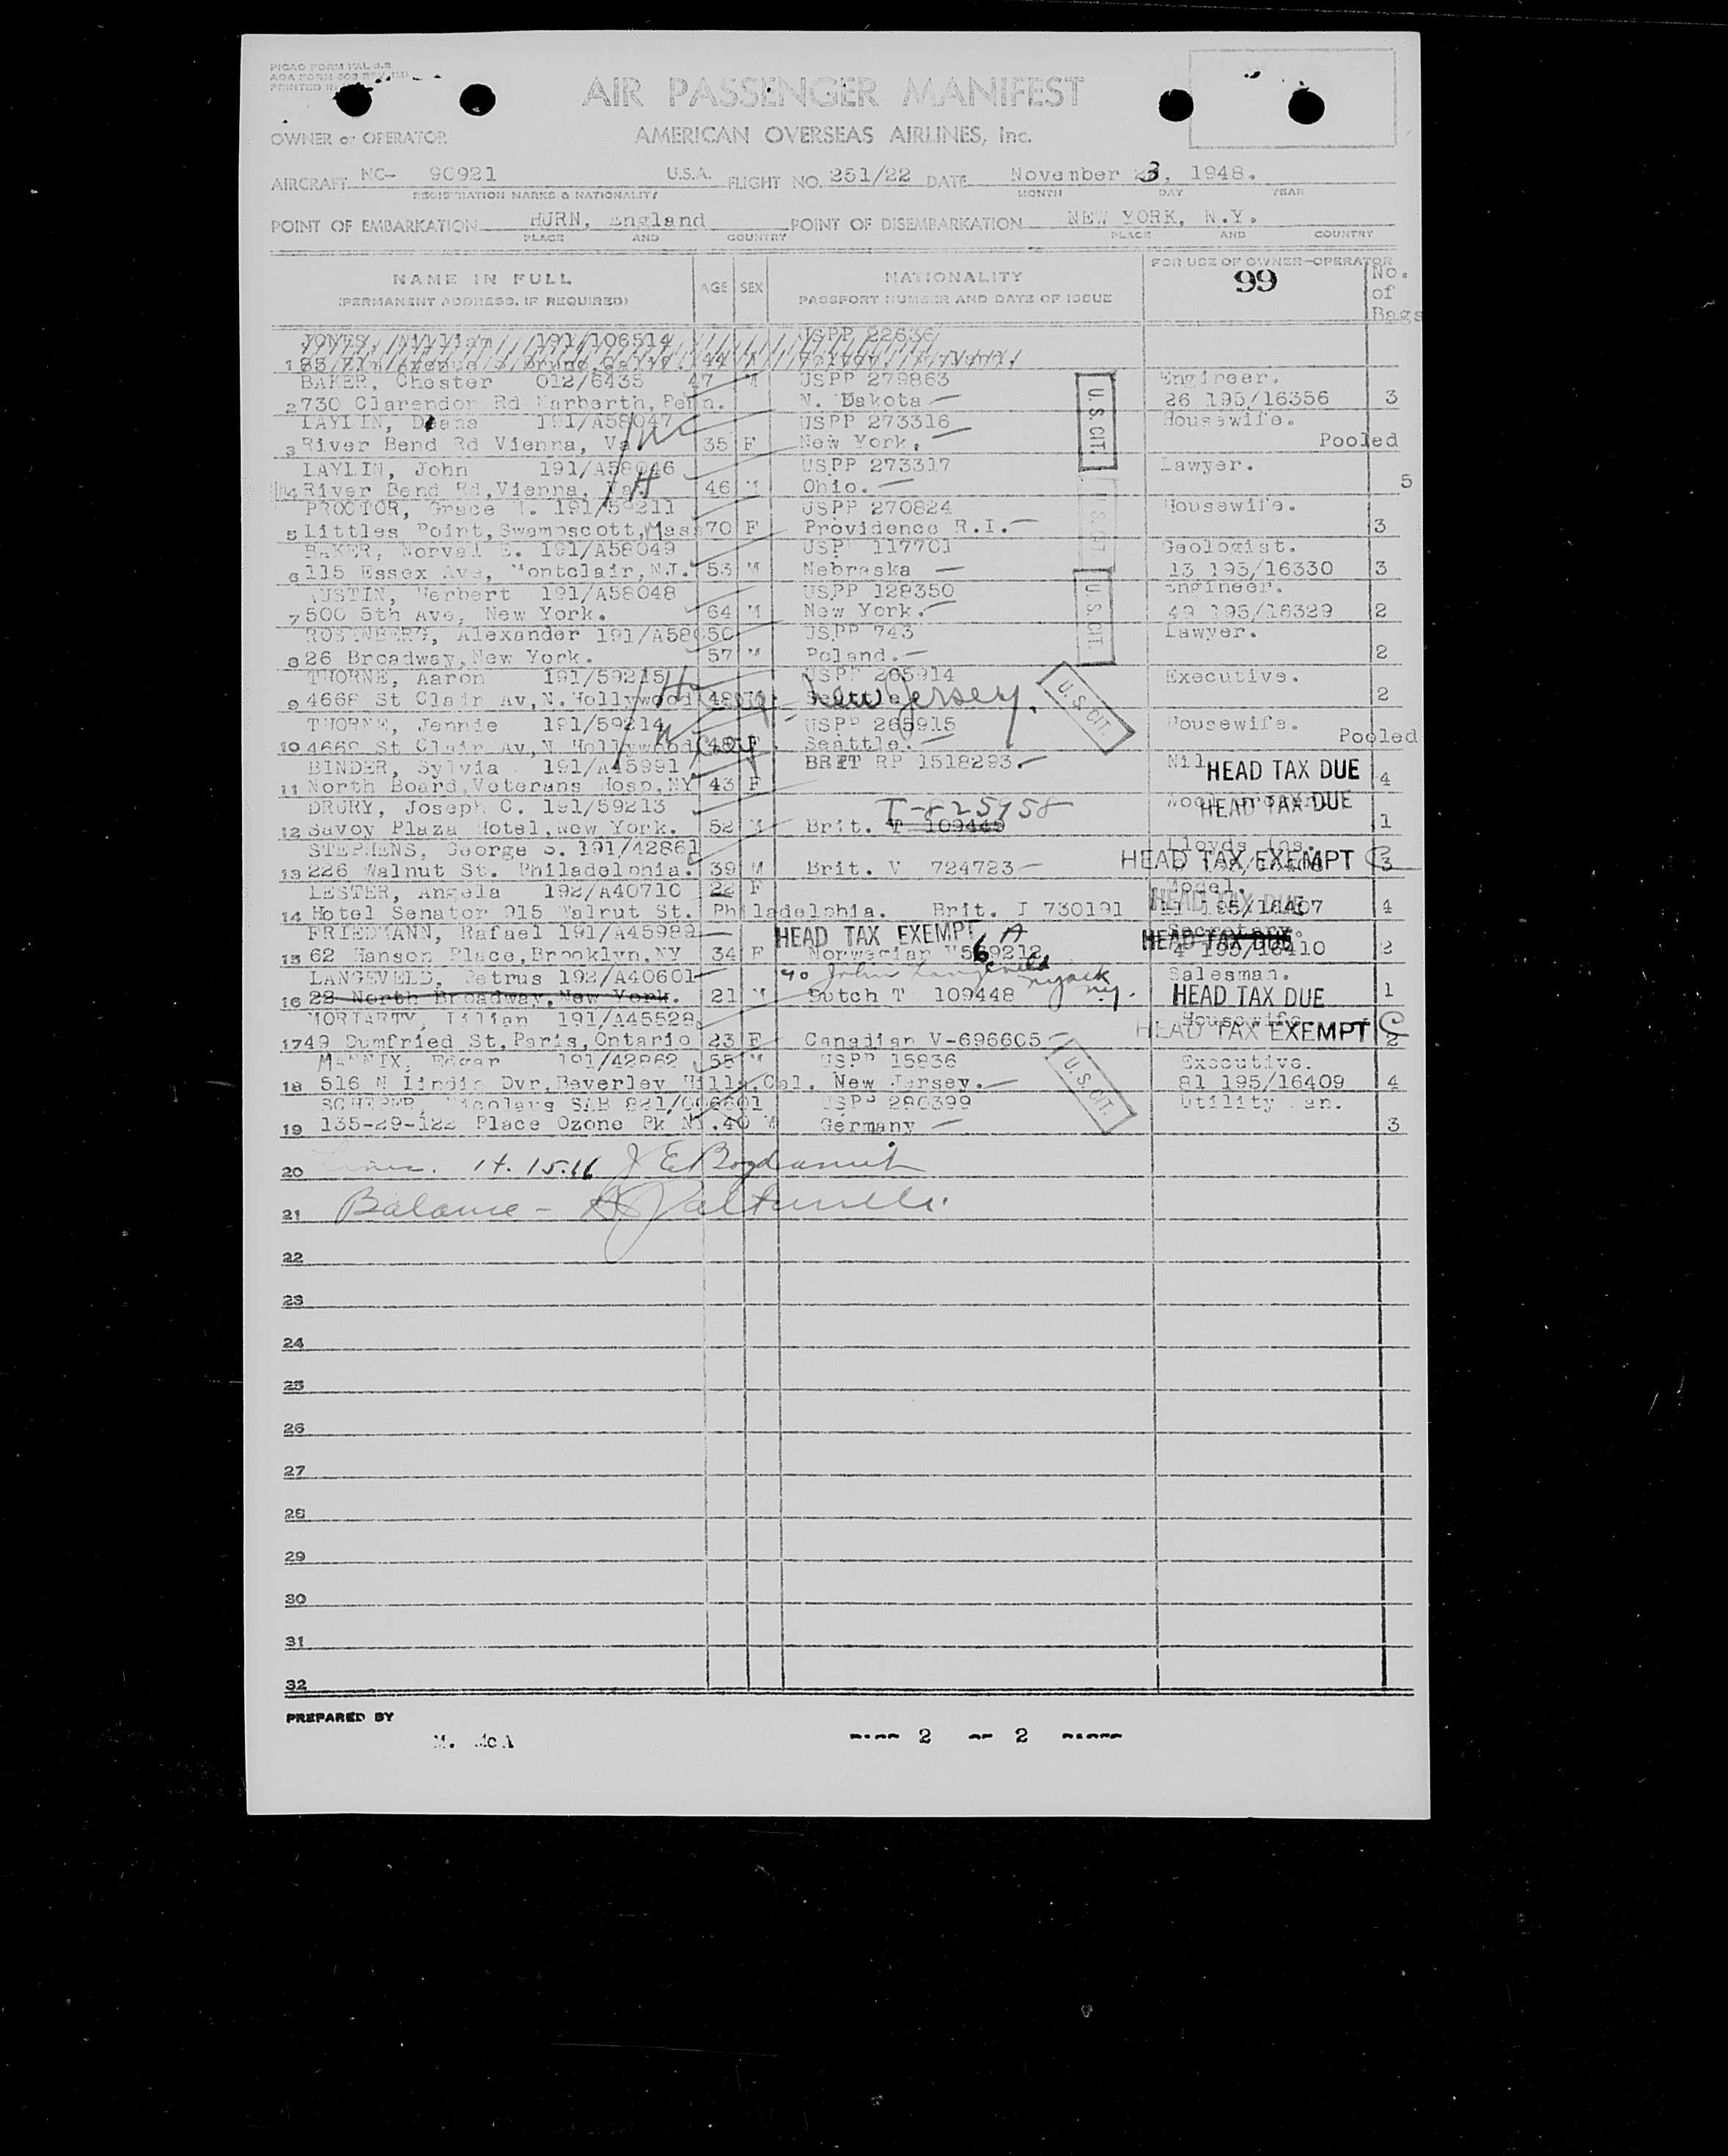 PICAO FORM PAL 3.2
AOA FORM 603 REV.
PRINTED IN
AIR PASSENGER MANIFEST
OWNER or OPERATOR
AMERICAN OVERSEAS AIRLINES, Inc.
AIRCRAFT NC- 90921 U.S.A. FLIGHT NO. 251/22 DATE November 23, 1948.
REGISTRATION MARKS & NATIONALITY MONTH DAY YEAR
POINT OF EMBARKATION HURN, England POINT OF DISEMBARKATION NEW YORK, N.Y.
PLACE AND COUNTRY PLACE AND COUNTRY
NAME IN FULL AGE SEX NATIONALITY FOR USE OF OWNER-OPERATOR
(PERMANENT ADDRESS, IF REQUIRED) PASSPORT NUMBER AND DATE OF ISSUE 99 No. of Bags
JONES, William 191/106514 USPP 22636
1 85 Elm Avenue 44
BAKER, Chester 012/6435 47 M USPP 279863 Engineer.
2 730 Clarendon Rd Narberth, Penn. N. Dakota 26 195/16356 3
LAYLIN, Deana 191/A58047 USPP 273316 Housewife.
3 River Bend Rd Vienna, Va 35 F New York. Pooled
LAYLIN, John 191/A58046 USPP 273317 Lawyer.
4 River Bend Rd, Vienna, Va. 46 M Ohio. 5
PROCTOR, Grace 191/59211 USPP 270824 Housewife.
5 Littles Point, Swampscott, Mass 70 F Providence R.I. 3
BAKER, Norval E. 191/A58049 USPP 117701 Geologist.
6 115 Essex Ave, Montclair, N.J. 53 M Nebraska 13 195/16330 3
AUSTIN, Herbert 191/A58048 USPP 128350 Engineer.
7 500 5th Ave, New York. 64 M New York. 49 195/16329 2
ROSENBERG, Alexander 191/A58050 USPP 743 Lawyer.
8 26 Broadway, New York. 57 M Poland. 2
THORNE, Aaron 191/59215 USPP 265914 Executive.
9 4668 St Clair Av, N. Hollywood 48 M Seattle New Jersey. 2
THORNE, Jennie 191/59214 USPP 265915 Housewife.
10 4668 St Clair Av, N. Hollywood Calif 48 F Seattle. Pooled
BINDER, Sylvia 191/A45991 BRIT RP 1518293. Nil
11 North Board, Veterans Hosp, NY 43 F HEAD TAX DUE 4
DRURY, Joseph C. 191/59213 T-825958 HEAD TAX DUE
12 Savoy Plaza Hotel, New York. 52 M Brit. T 109449 1
STEPHENS, George S. 191/42861 Lloyds Ins.
13 226 Walnut St. Philadelphia. 39 M Brit. V 724723 HEAD TAX EXEMPT 3
LESTER, Angela 192/A40710 22 F Model.
14 Hotel Senator 915 Walnut St. Philadelphia. Brit. I 730191 HEAD TAX DUE 195/16407 4
FRIEDMANN, Rafael 191/A45989 HEAD TAX EXEMPT A Secretary.
15 62 Hanson Place, Brooklyn, NY 34 F Norwegian 569212 HEAD TAX DUE 4 195/16410 2
LANGEVELD, Petrus 192/A40601 c/o John Langeveld Nyack N.Y. Salesman.
16 22 North Broadway, New York. 21 M Dutch T 109448 HEAD TAX DUE 1
MORIARTY, Lilian 191/A45528 Housewife
17 49 Dumfried St, Paris, Ontario 23 F Canadian V-696605 HEAD TAX EXEMPT 2
MANNIX, Edgar 191/42862 55 M USPP 15836 Executive.
18 516 N Lindin Dvr, Beverley Hills, Cal. New Jersey. 81 195/16409 4
SCHEPER, Nicolaus SAB 821/006601 USPP 280399 Utility Man.
19 135-29-122 Place Ozone Pk NY. 40 M Germany 3
U.S. CIT.
U.S. CIT.
U.S. CIT.
U.S. CIT.
U.S. CIT.
20 Lines. 14.15.16
21 Balance -
22
23
24
25
26
27
28
29
30
31
32
PREPARED BY
M. McA
2 2